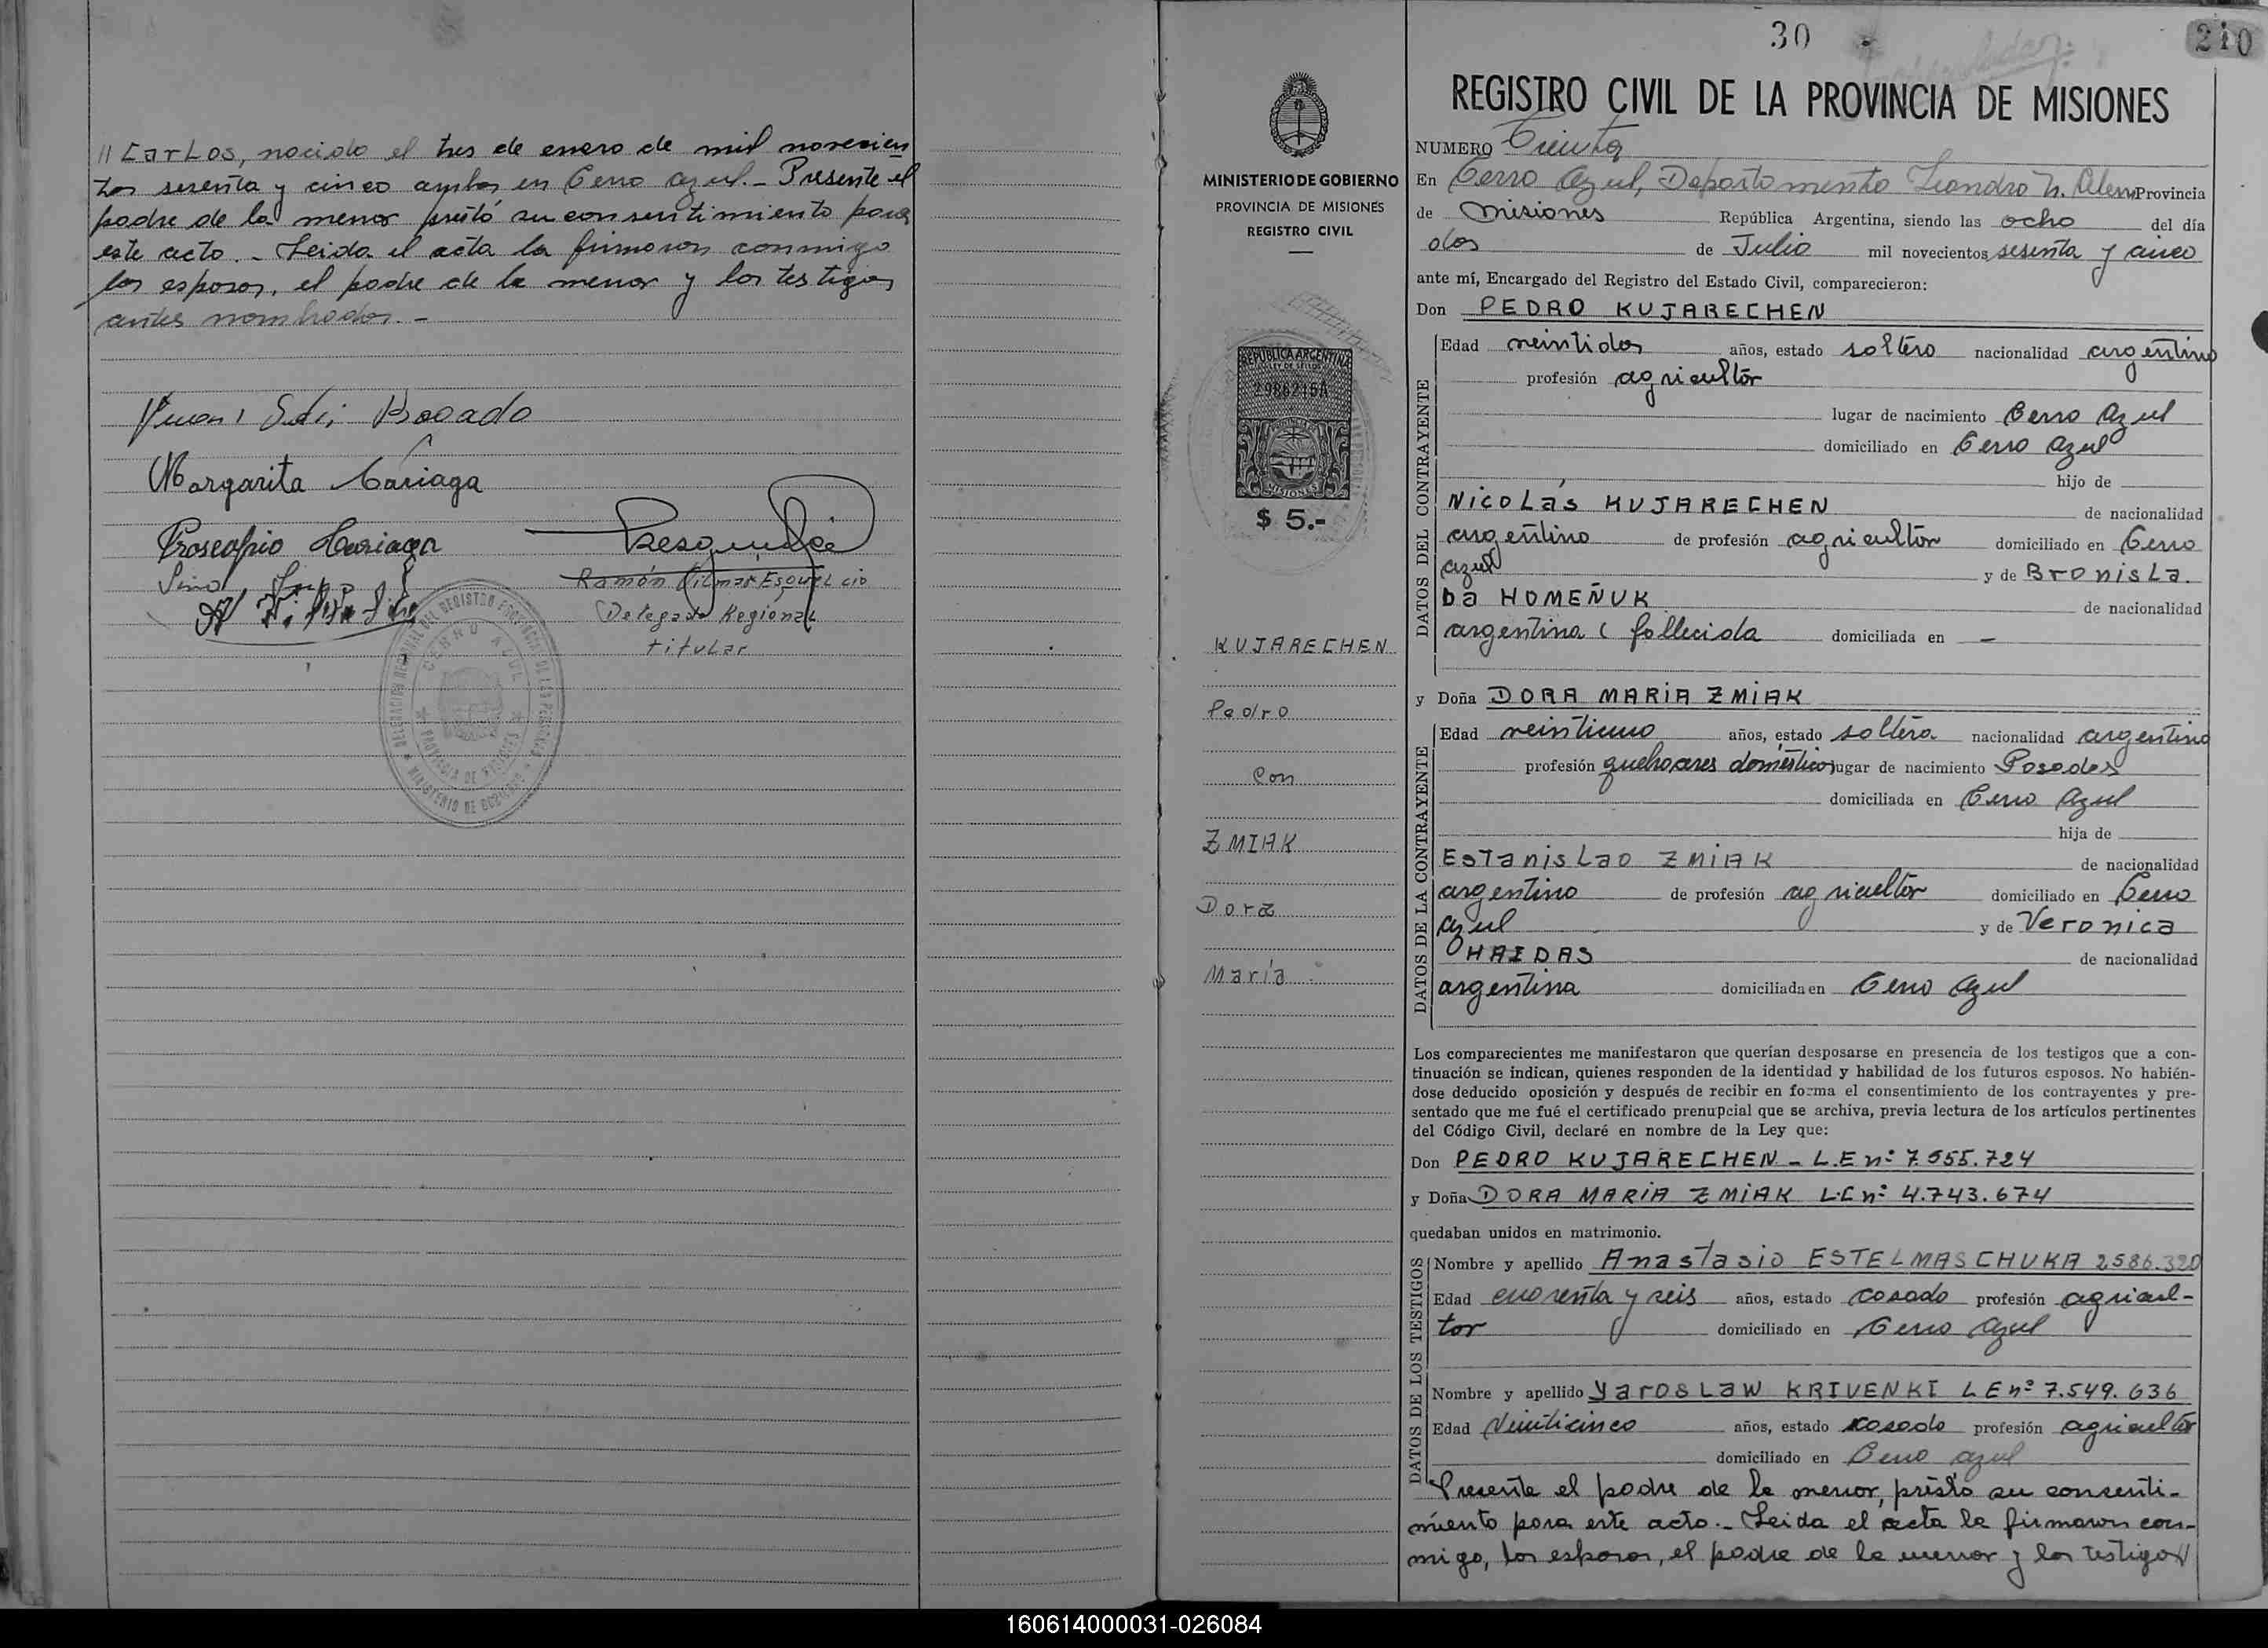 // CarLos, nacido el tres de enero de mil novecien
tos sesenta y cinco ambos en Cerro Azul.- Presente el
padre de la menor prestó su consentimiento para
este acto.- Leida el acta la firmaron conmigo
los esposos, el padre de la menor y los testigos
antes nombrados.-
Margarita Cariaga
Ramón Esquivel
Delegado Regional
titular
DELEGACION REGIONAL DEL REGISTRO PROVINCIAL DE LAS PERSONAS
CERRO AZUL
PROVINCIA DE MISIONES
MINISTERIO DE GOBIERNO
MINISTERIO DE GOBIERNO
PROVINCIA DE MISIONES
REGISTRO CIVIL
REPUBLICA ARGENTINA
LEY DE SELLOS
2986216A
PROVINCIA
MISIONES
$ 5.-
KUJARECHEN
Pedro
Con
ZMIAK
Dora
María
30
210
REGISTRO CIVIL DE LA PROVINCIA DE MISIONES
NUMERO Treinta
En Cerro Azul, Departamento Leandro N. Alem Provincia
de Misiones República Argentina, siendo las ocho del día
dos de Julio mil novecientos sesenta y cinco
ante mí, Encargado del Registro del Estado Civil, comparecieron:
Don PEDRO KUJARECHEN
DATOS DEL CONTRAYENTE
Edad veintidos años, estado soltero nacionalidad argentino
profesión agricultor
lugar de nacimiento Cerro Azul
domiciliado en Cerro Azul
hijo de
NicoLás KUJARECHEN de nacionalidad
argentino de profesión agricultor domiciliado en Cerro
Azul y de BronisLa.
ba HOMEÑUK de nacionalidad
argentina ( fallecida domiciliada en -
y Doña DORA MARIA ZMIAK
DATOS DE LA CONTRAYENTE
Edad veintiuno años, estado soltera nacionalidad argentina
profesión quehaceres domésticos lugar de nacimiento Posadas
domiciliada en Cerro Azul
hija de
EstanisLao ZMIAK de nacionalidad
argentino de profesión agricultor domiciliado en Cerro
Azul y de Veronica
HAIDAS de nacionalidad
argentina domiciliada en Cerro Azul
Los comparecientes me manifestaron que querían desposarse en presencia de los testigos que a con-
tinuación se indican, quienes responden de la identidad y habilidad de los futuros esposos. No habién-
dose deducido oposición y después de recibir en forma el consentimiento de los contrayentes y pre-
sentado que me fué el certificado prenupcial que se archiva, previa lectura de los artículos pertinentes
del Código Civil, declaré en nombre de la Ley que:
Don PEDRO KUJARECHEN - L.E nº 7.555.724
y Doña DORA MARIA ZMIAK L.C nº 4.743.674
quedaban unidos en matrimonio.
DATOS DE LOS TESTIGOS
Nombre y apellido Anastasio ESTELMASCHUKA 2586.320
Edad cuarenta y seis años, estado casado profesión agricul-
tor domiciliado en Cerro Azul
Nombre y apellido YarosLaw KRIVENKI L E nº 7.549.636
Edad Veinticinco años, estado casado profesión agricultor
domiciliado en Cerro Azul
Presente el padre de la menor, prestó su consenti-
miento para este acto.- Leida el acta la firmaron con-
migo, los esposos, el padre de la menor y los testigos//
160614000031-026084